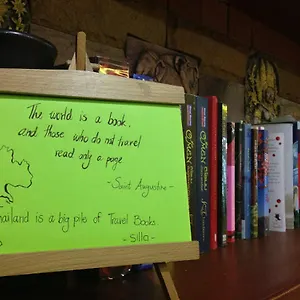 The world is a book,
and those who do not travel
read only a page
- Saint Augustine -
Thailand is a big pile of Travel Books.
- Silla -